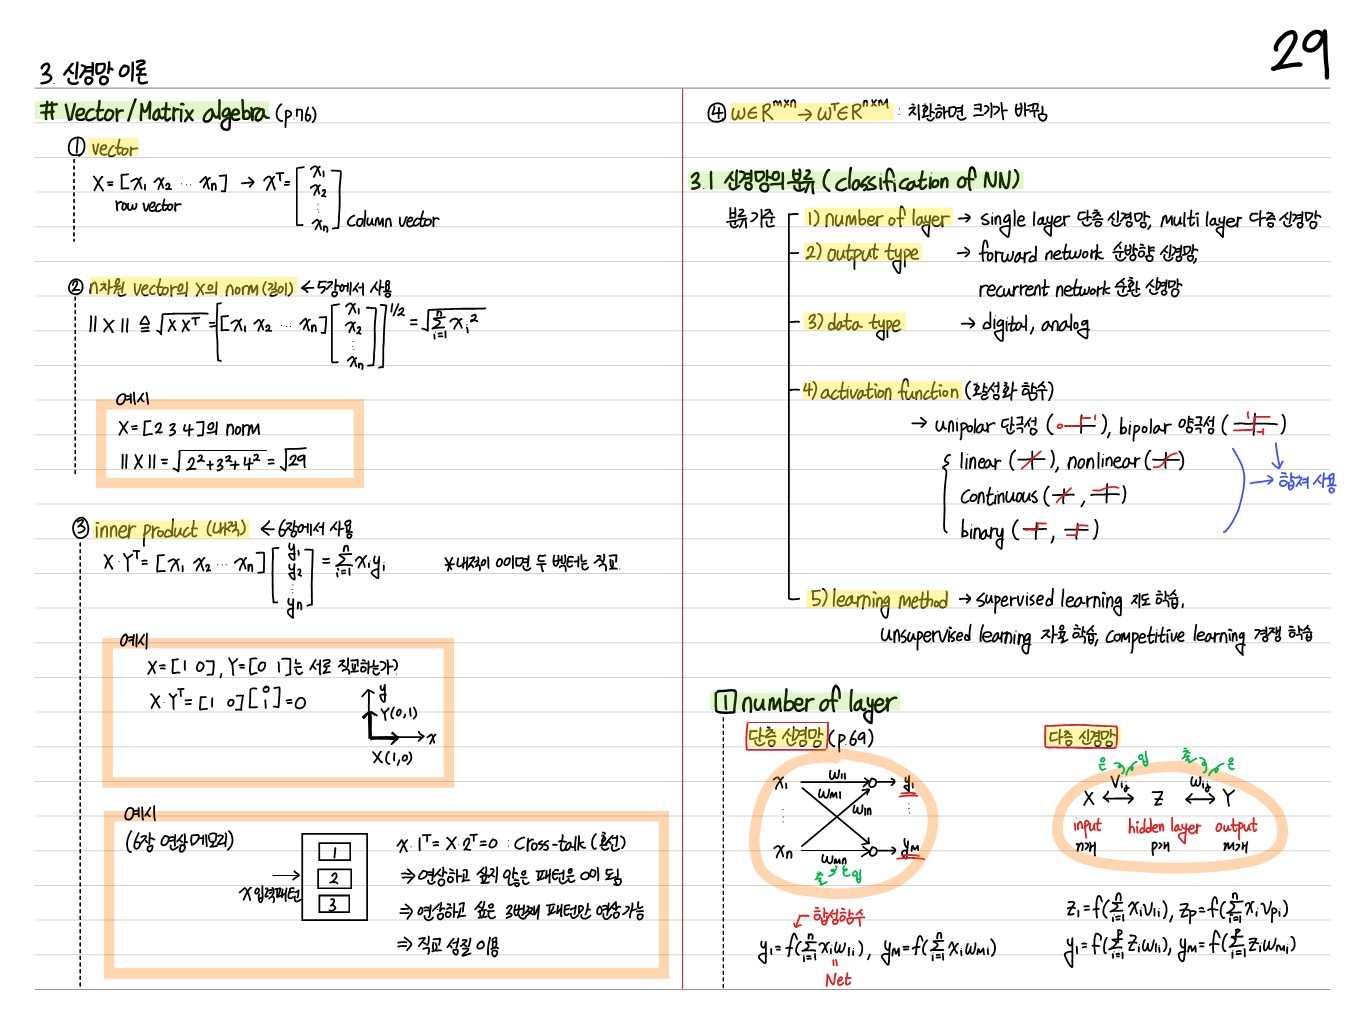 29
3. 신경망 이론
# Vector/Matrix algebra (p.76)
① vector
X = [x₁ x₂ ⋯ xₙ] → Xᵀ = [x₁ x₂ ⋮ xₙ]
row vector
column vector
② n차원 vector의 X의 norm(길이) ← 5장에서 사용
||X|| ≙ √XXᵀ = [[x₁ x₂ ⋯ xₙ][x₁ x₂ ⋮ xₙ]]^1/2 = √Σᵢ₌₁ⁿ xᵢ²
예시
X = [2 3 4]의 norm
||X|| = √2²+3²+4² = √29
③ inner product (내적) ← 6장에서 사용
X·Yᵀ = [x₁ x₂ ⋯ xₙ][y₁ y₂ ⋮ yₙ] = Σᵢ₌₁ⁿ xᵢyᵢ
*내적이 0이면 두 벡터는 직교.
예시
X = [1 0], Y = [0 1]는 서로 직교하는가?
X·Yᵀ = [1 0][0 1] = 0
y
Y(0,1)
x
X(1,0)
예시
(6장 연상메모리)
X 입력패턴
1
2
3
x·1ᵀ = X·2ᵀ = 0 : Cross-talk (혼선)
⇒ 연상하고 싶지 않은 패턴은 0이 됨
⇒ 연상하고 싶은 3번째 패턴만 연상 가능
⇒ 직교 성질 이용
④ W∈Rᵐˣⁿ → Wᵀ∈Rⁿˣᵐ : 치환하면 크기가 바뀜
3.1 신경망의 분류 (classification of NN)
분류 기준
1) number of layer → single layer 단층 신경망, multi layer 다층 신경망
2) output type → forward network 순방향 신경망,
recurrent network 순환 신경망
3) data type → digital, analog
4) activation function (활성화 함수)
→ unipolar 단극성 (0 1), bipolar 양극성 (1 -1)
linear ( ), nonlinear ( )
continuous ( , )
binary ( , )
→ 합쳐 사용
5) learning method → supervised learning 지도 학습,
unsupervised learning 자율 학습, competitive learning 경쟁 학습
1 number of layer
단층 신경망 (p.69)
x₁ w₁₁ y₁
wₘ₁ w₁ₙ
xₙ wₘₙ yₘ
출 입
합성함수
y₁ = f(Σᵢ₌₁ⁿ xᵢw₁ᵢ), yₘ = f(Σᵢ₌₁ⁿ xᵢwₘᵢ)
Net
다층 신경망
은 입 출 은
Vᵢⱼ Wᵢⱼ
X ↔ Z ↔ Y
input hidden layer output
n개 p개 m개
z₁ = f(Σᵢ₌₁ⁿ xᵢv₁ᵢ), zₚ = f(Σᵢ₌₁ⁿ xᵢvₚᵢ)
y₁ = f(Σᵢ₌₁ᵖ zᵢw₁ᵢ), yₘ = f(Σᵢ₌₁ᵖ zᵢwₘᵢ)